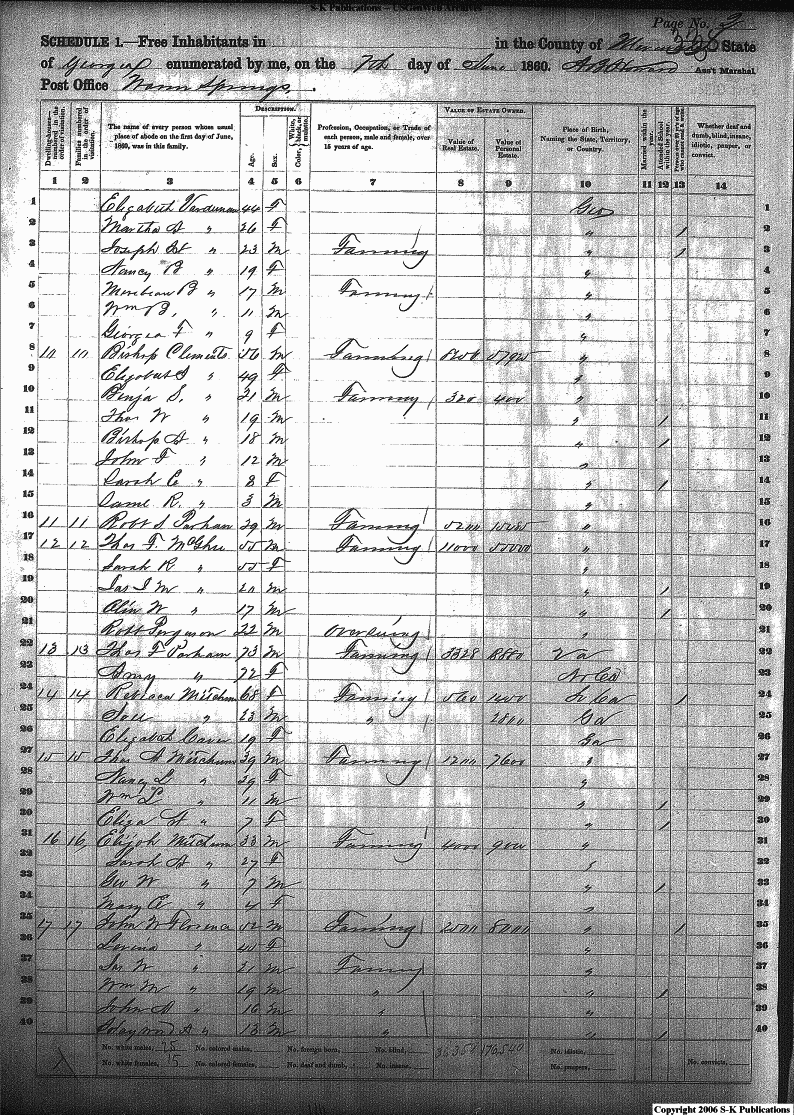 S-K Publications – USGenWeb Archives
Page No. 2
338
SCHEDULE 1.—Free Inhabitants in in the County of State
of Georgia enumerated by me, on the 7th day of June 1860. Ass't Marshal
Post Office Warm Springs.
DESCRIPTION. VALUE OF ESTATE OWNED.
Dwelling-houses numbered in the order of visitation. Families numbered in the order of visitation. The name of every person whose usual place of abode on the first day of June, 1860, was in this family. Age. Sex. Color, White, black, or mulatto. Profession, Occupation, or Trade of each person, male and female, over 15 years of age. Value of Real Estate. Value of Personal Estate. Place of Birth, Naming the State, Territory, or Country. Married within the year. Attended School within the year. Whether deaf and dumb, blind, insane, idiotic, pauper, or convict.
1 2 3 4 5 6 7 8 9 10 11 12 13 14
1 Elizabeth Vardeman 44 F Geo 1
2 Martha A " 26 F " / 2
3 Joseph " 23 M Farming " / 3
4 Nancy B " 19 F " 4
5 B " 17 M Farming " 5
6 Wm B. " 11 M " 6
7 Georgia F " 9 F " 7
8 10 10 Bishop Clements 56 M Farming " 8
9 Elizabeth " 49 F " 9
10 Benja S. " 21 M Farming 320 400 " 10
11 Thos W " 19 M " / 11
12 Bishop " 18 M " / 12
13 John F " 12 M " 13
14 Sarah E " 8 F " / 14
15 Saml R. " 3 M " 15
16 11 11 Robt S Parham 29 M Farming 5200 " 16
17 12 12 Thos F. McGhee 55 M Farming 11000 55000 " 17
18 Sarah R " 55 F " 18
19 Jas " 20 M " / 19
20 Olin W " 17 M " / 20
21 Robt Ferguson 22 M " 21
22 13 13 Thos F Parham 73 M Farming 3328 8880 Va 22
23 " 72 F No Ca 23
24 14 14 Rebecca Mitchum 68 F Farming 500 1400 So Ca / 24
25 " 23 M " 2800 Ga 25
26 Elizabeth 19 F Ga 26
27 15 15 Thos Mitchum 39 M Farming 1200 7600 " 27
28 Nancy L " 29 F " 28
29 Wm L " 11 M " / 29
30 Eliza " 7 F " / 30
31 16 16 Elijah Mitchum 33 M Farming 4000 900 " 31
32 Sarah A " 27 F " 32
33 Geo W " 7 M " / 33
34 Mary " 4 F " 34
35 17 17 John W Florence 52 M Farming 2500 8000 " / 35
36 " F " 36
37 Jas W " 21 M Farming " 37
38 Wm M " 19 M " " / 38
39 John A " 16 M " " 39
40 " 13 M " " / 40
No. white males, 25 No. colored males, No. foreign born, No. blind, 36350 170,540 No. idiotic,
No. white females, 15 No. colored females, No. deaf and dumb, No. insane, No. paupers, No. convicts,
Copyright 2006 S-K Publications